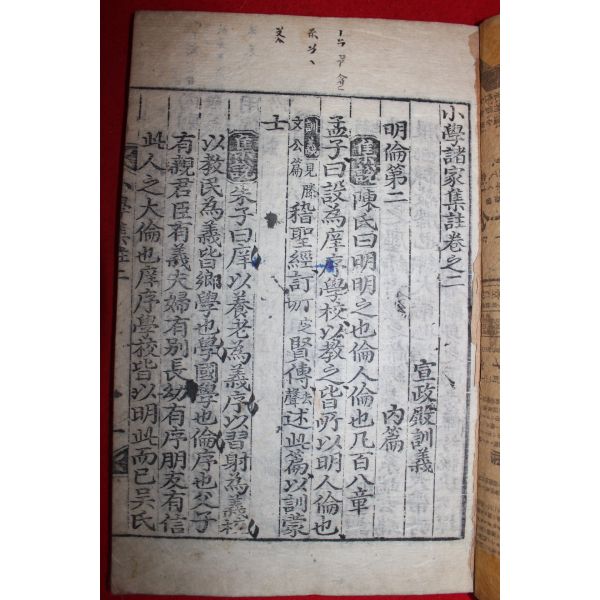 小學諸家集註卷之二
宣政殿訓義
明倫第二
內篇
集解陳氏曰明明之也倫人倫也凡百八章
孟子曰設爲庠序學校以敎之皆所以明人倫也
訓義見滕文公篇稽聖經訂之賢傳去聲述此篇以訓蒙
士
集解朱子曰庠以養老爲義序以習射爲義校
以敎民爲義皆鄕學也學國學也倫序也父子
有親君臣有義夫婦有别長幼有序朋友有信
此人之大倫也庠序學校皆以明此而已吳氏
小學集註二